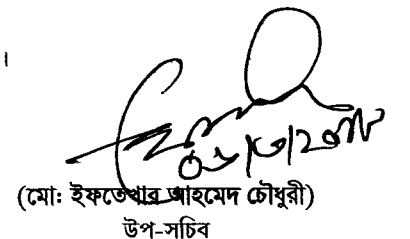 (মোঃ ইফতেখার আহমেদ চৌধুরী)
উপ-সচিব